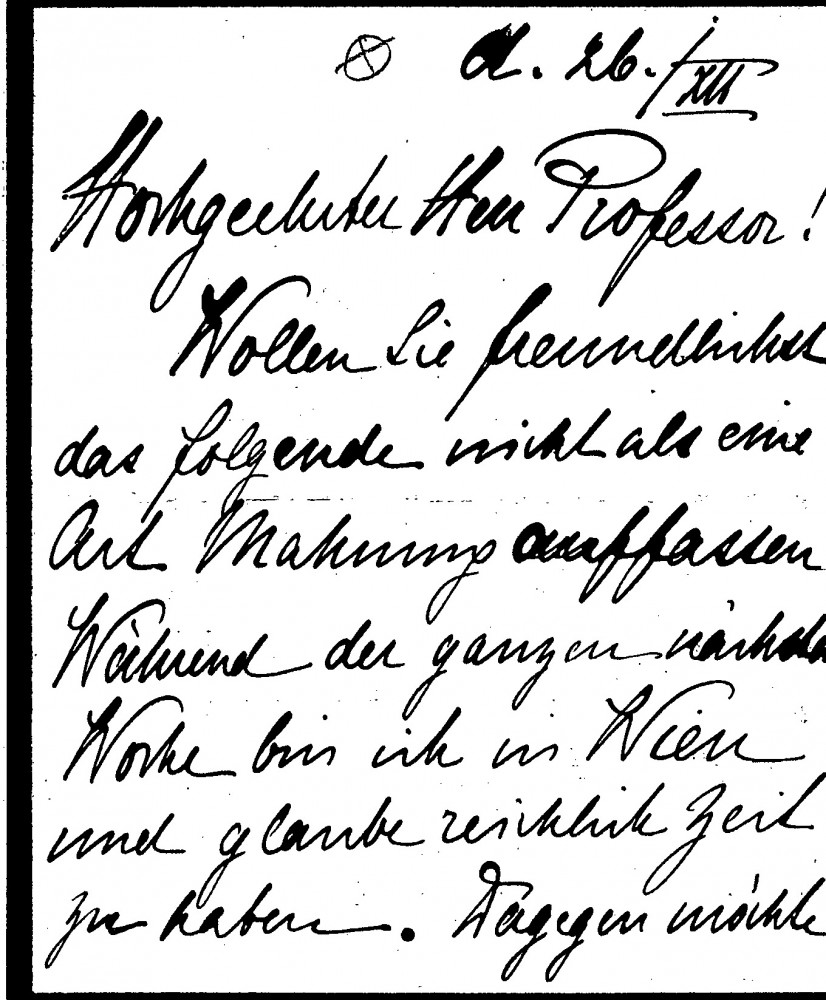 d. 26./XII
Hochgeehrter Herr Professor!
Wollen Sie freundlichst
das folgende nicht als eine
Art Mahnung auffassen
Während der ganzen nächsten
Woche bin ich in Wien
und glaube reichlich Zeit
zu haben. Dagegen möchte